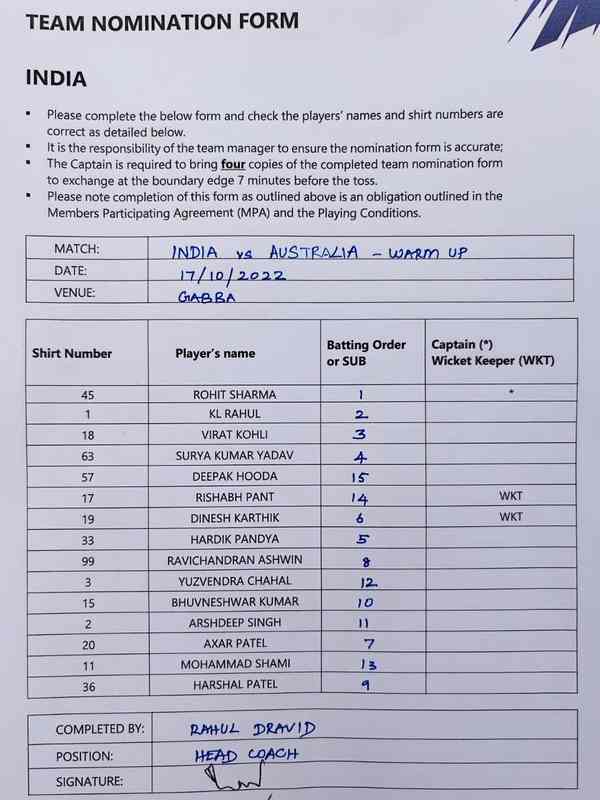 TEAM NOMINATION FORM
INDIA
▪ Please complete the below form and check the players' names and shirt numbers are
correct as detailed below.
▪ It is the responsibility of the team manager to ensure the nomination form is accurate;
▪ The Captain is required to bring four copies of the completed team nomination form
to exchange at the boundary edge 7 minutes before the toss.
▪ Please note completion of this form as outlined above is an obligation outlined in the
Members Participating Agreement (MPA) and the Playing Conditions.
MATCH: INDIA vs AUSTRALIA - WARM UP
DATE: 17/10/2022
VENUE: GABBA
Shirt Number Player's name Batting Order or SUB Captain (*) Wicket Keeper (WKT)
45 ROHIT SHARMA 1 *
1 KL RAHUL 2
18 VIRAT KOHLI 3
63 SURYA KUMAR YADAV 4
57 DEEPAK HOODA 15
17 RISHABH PANT 14 WKT
19 DINESH KARTHIK 6 WKT
33 HARDIK PANDYA 5
99 RAVICHANDRAN ASHWIN 8
3 YUZVENDRA CHAHAL 12
15 BHUVNESHWAR KUMAR 10
2 ARSHDEEP SINGH 11
20 AXAR PATEL 7
11 MOHAMMAD SHAMI 13
36 HARSHAL PATEL 9
COMPLETED BY: RAHUL DRAVID
POSITION: HEAD COACH
SIGNATURE: